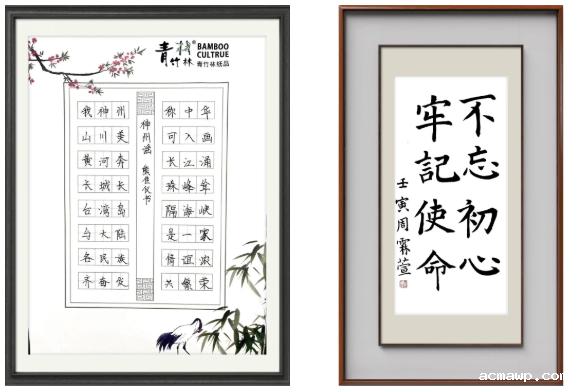 青竹林®
BAMBOO
CULTRUE
青竹林纸品
神州谣
我神州 称中华
山川美 可入画
黄河奔 长江涌
长城长 珠峰耸
台湾岛 隔海峡
与大陆 是一家
各民族 情谊浓
齐奋发 共繁荣
不忘初心
牢記使命
壬寅周霖萱
acmawp.co